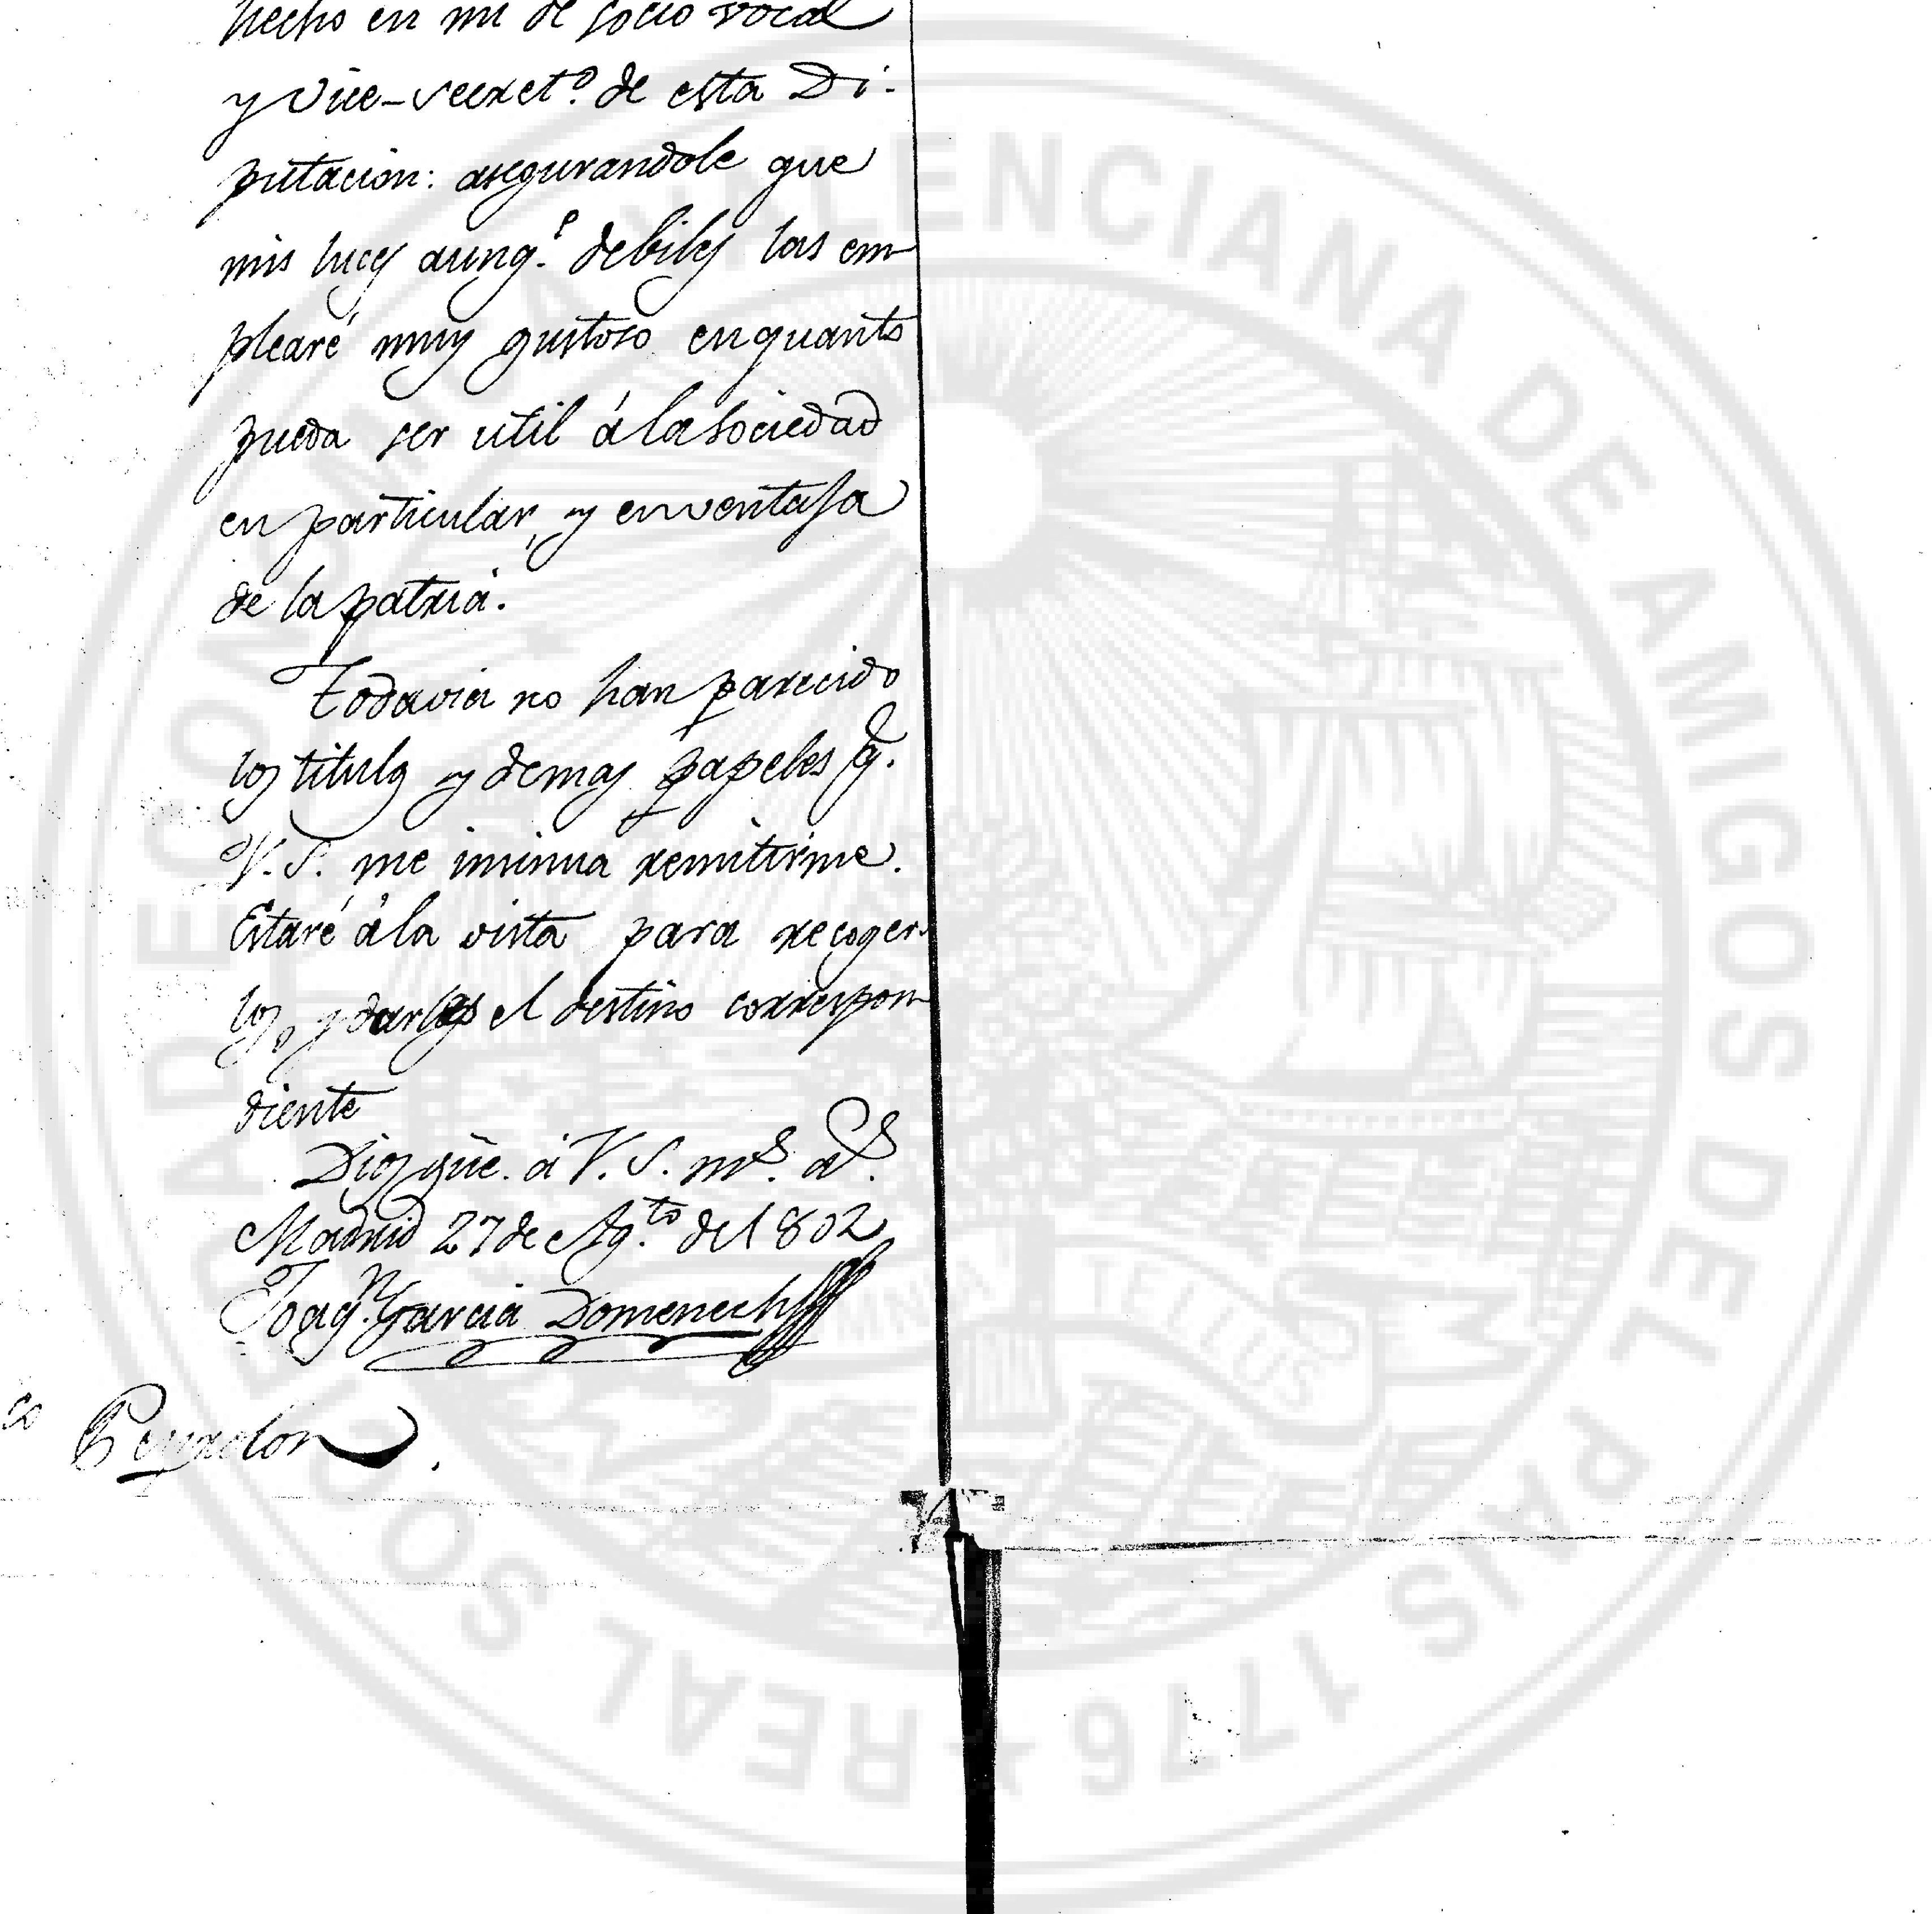 hecho en mi de socio vocal
y Vice-Secret.º de esta Di-
putacion: asegurandole que
mis luces aunq.e debiles las em-
plearé muy gustoso en quanto
pueda ser util á la Sociedad
en particular, y en ventaja
de la patria.
Todavia no han parecido
los titulos y demas papeles q.e
V. S. me insinua remitirme.
Estaré á la vista para recoger-
los, y darles el destino correspon-
diente
Dios gûe. á V. S. m.s a.s
Madrid 27 de Ag.to de 1802
Joaq.n Garcia Domenech
co Peyrolon.
REAL SOCIEDAD ECONÓMICA VALENCIANA DE AMIGOS DEL PAIS 1776